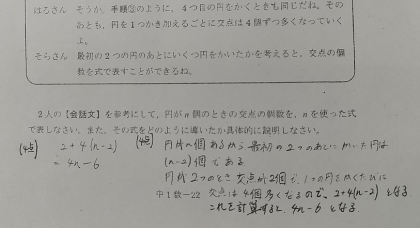 はるさん そうか，手順②のように，４つ目の円をかくときも同じだね。その
あとも，円を１つかき加えるごとに交点は４個ずつ多くなっていく
よ。
そらさん 最初の２つの円のあとにいくつ円をかいたかを考えると，交点の個
数を式で表すことができるね。
２人の【会話文】を参考にして，円がn個のときの交点の個数を，nを使った式
で表しなさい。また，その式をどのように導いたか具体的に説明しなさい。
(4点) 2+4(n-2)
= 4n-6
(4点) 円がn個あるから 最初の2つのあとにかいた円は
(n-2)個である
円が2つのとき交点が2個で，1つの円をかくたびに
中１数－22 交点は4個多くなるので，2+4(n-2)となる
これを計算すると，4n-6となる